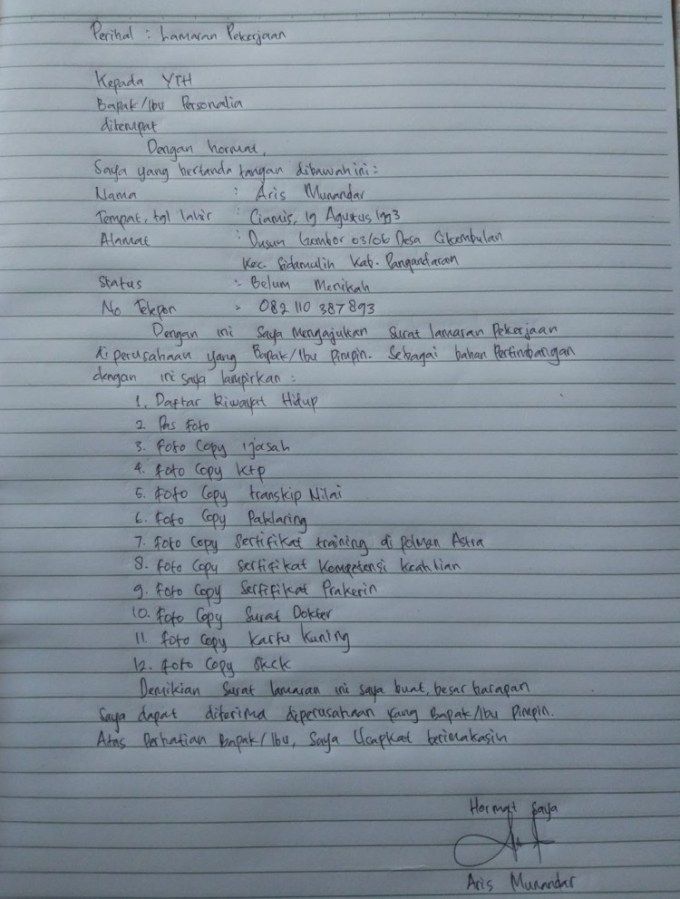 Perihal : Lamaran Pekerjaan
Kepada YTH
Bapak/Ibu Personalia
ditempat
Dengan hormat,
Saya yang bertanda tangan dibawah ini :
Nama : Aris Munandar
Tempat, tgl lahir : Ciamis, 19 Agustus 1993
Alamat : Dusun Gembor 03/06 Desa Cikembulan
Kec. Sidamulih Kab. Pangandaran
Status : Belum Menikah
No Telepon : 082 110 387 893
Dengan ini Saya Mengajukan Surat lamaran Pekerjaan
di perusahaan yang Bapak/Ibu Pimpin. Sebagai bahan Pertimbangan
dengan ini saya lampirkan :
1. Daftar Riwayat Hidup
2. Pas Foto
3. Foto Copy ijasah
4. Foto Copy Ktp
5. Foto Copy transkip Nilai
6. Foto Copy Paklaring
7. Foto Copy Sertifikat training di polman Astra
8. Foto Copy Sertifikat Kompetensi Keahlian
9. Foto Copy Sertifikat Prakerin
10. Foto Copy Surat Dokter
11. Foto Copy Kartu Kuning
12. Foto Copy Skck
Demikian Surat lamaran ini saya buat, besar harapan
Saya dapat diterima diperusahaan yang Bapak/Ibu Pimpin.
Atas Perhatian Bapak/Ibu, Saya Ucapkat terimakasih
Hormat Saya
Aris Munandar